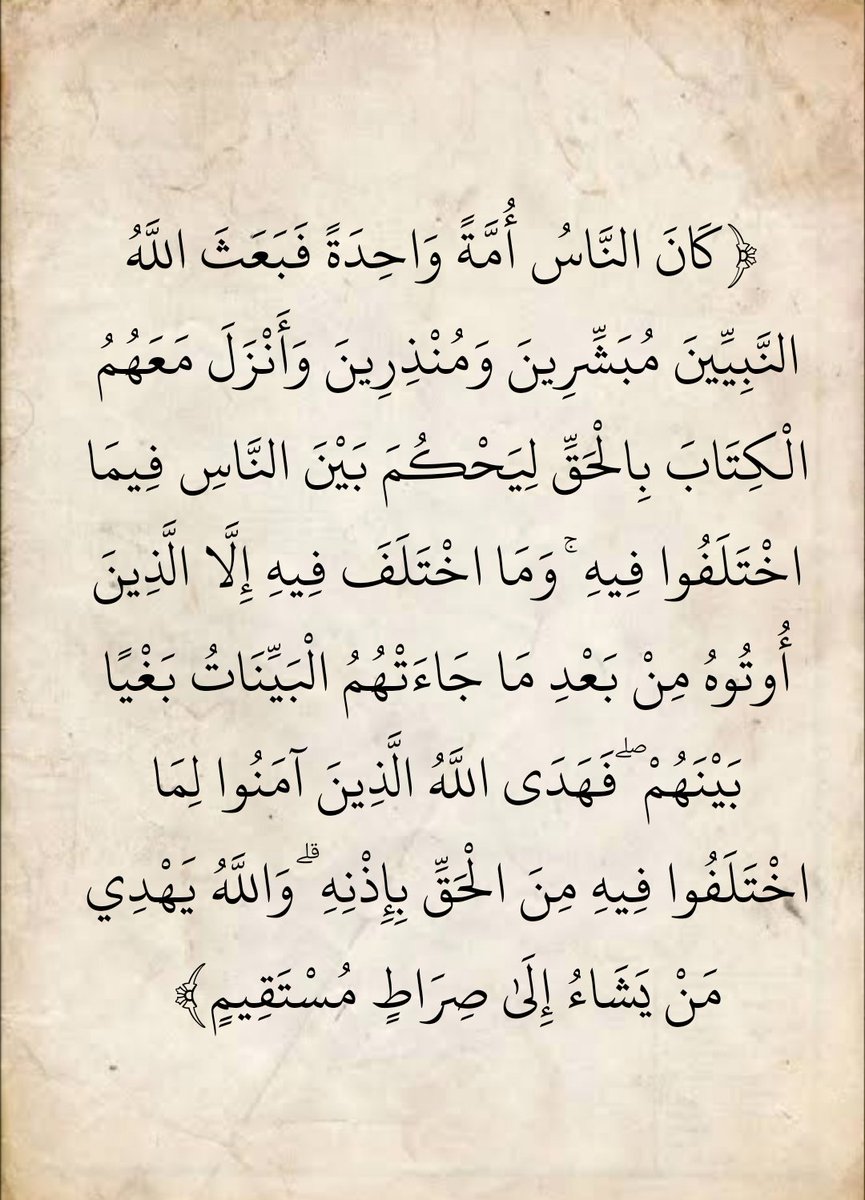 ﴿كَانَ النَّاسُ أُمَّةً وَاحِدَةً فَبَعَثَ اللَّهُ
النَّبِيِّينَ مُبَشِّرِينَ وَمُنْذِرِينَ وَأَنْزَلَ مَعَهُمُ
الْكِتَابَ بِالْحَقِّ لِيَحْكُمَ بَيْنَ النَّاسِ فِيمَا
اخْتَلَفُوا فِيهِ ۚ وَمَا اخْتَلَفَ فِيهِ إِلَّا الَّذِينَ
أُوتُوهُ مِنْ بَعْدِ مَا جَاءَتْهُمُ الْبَيِّنَاتُ بَغْيًا
بَيْنَهُمْ ۖ فَهَدَى اللَّهُ الَّذِينَ آمَنُوا لِمَا
اخْتَلَفُوا فِيهِ مِنَ الْحَقِّ بِإِذْنِهِ ۗ وَاللَّهُ يَهْدِي
مَنْ يَشَاءُ إِلَىٰ صِرَاطٍ مُسْتَقِيمٍ﴾